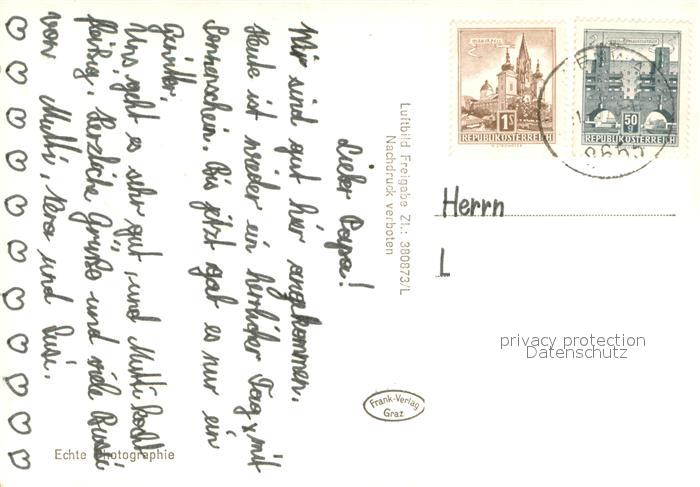 Lieber Papa!
Wir sind gut hier angekommen.
Heute ist wieder ein herrlicher Tag, mit
Sonnenschein. Bis jetzt gab es nur ein
Gewitter.
Uns geht es sehr gut, und Mutti kocht
fleißig. Herzliche Grüße und viele Bussi
von Mutti, Vera und Susi.
Luftbild Freigabe Zl.: 380873/L
Nachdruck verboten
Echte Photographie
Frank-Verlag
Graz
MARIAZELL
1S
REPUBLIK ÖSTERREICH
50g
REPUBLIK ÖSTERREICH
8655
Herrn
L
privacy protection
Datenschutz